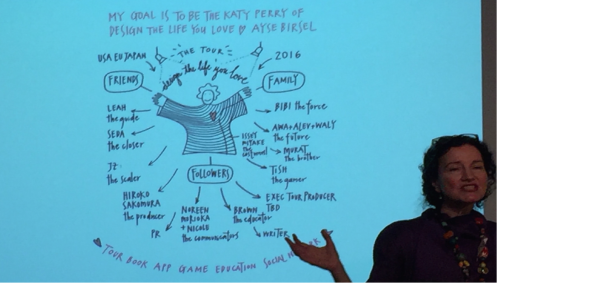 MY GOAL IS TO BE THE KATY PERRY OF
DESIGN THE LIFE YOU LOVE AYSE BIRSEL
USA EU JAPAN
THE TOUR
2016
design the life you love
FRIENDS
FAMILY
LEAH
the guide
SEDA
the closer
JZ:
the scaler
HIROKO
SAKOMURA
the producer
PR
NOREEN
MORIOKA
+ NICOLE
the communicators
FOLLOWERS
BROWN
the educator
WRITER
EXEC TOUR PRODUCER
TBD
BIBI the force
AWA+ALEV+WALY
the future
MURAT
the brother
TISH
the gamer
ISSEY
MIYAKE
the
costume
TOUR BOOK APP GAME EDUCATION SOCIAL